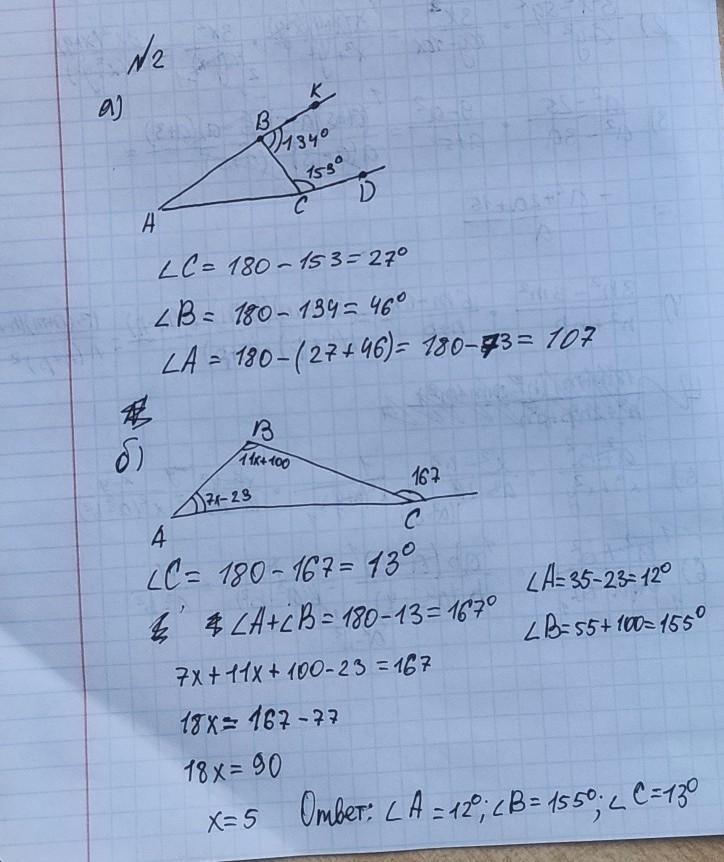 №2
а)
K
B
134°
153°
A
C
D
∠C = 180 - 153 = 27°
∠B = 180 - 134 = 46°
∠A = 180 - (27 + 46) = 180 - 73 = 107
б)
B
11x+100
167
7x-23
A
C
∠C = 180 - 167 = 13°
∠A+∠B = 180 - 13 = 167°
7x + 11x + 100 - 23 = 167
18x = 167 - 77
18x = 90
x = 5
∠A = 35 - 23 = 12°
∠B = 55 + 100 = 155°
Ответ: ∠A = 12°; ∠B = 155°; ∠C = 13°